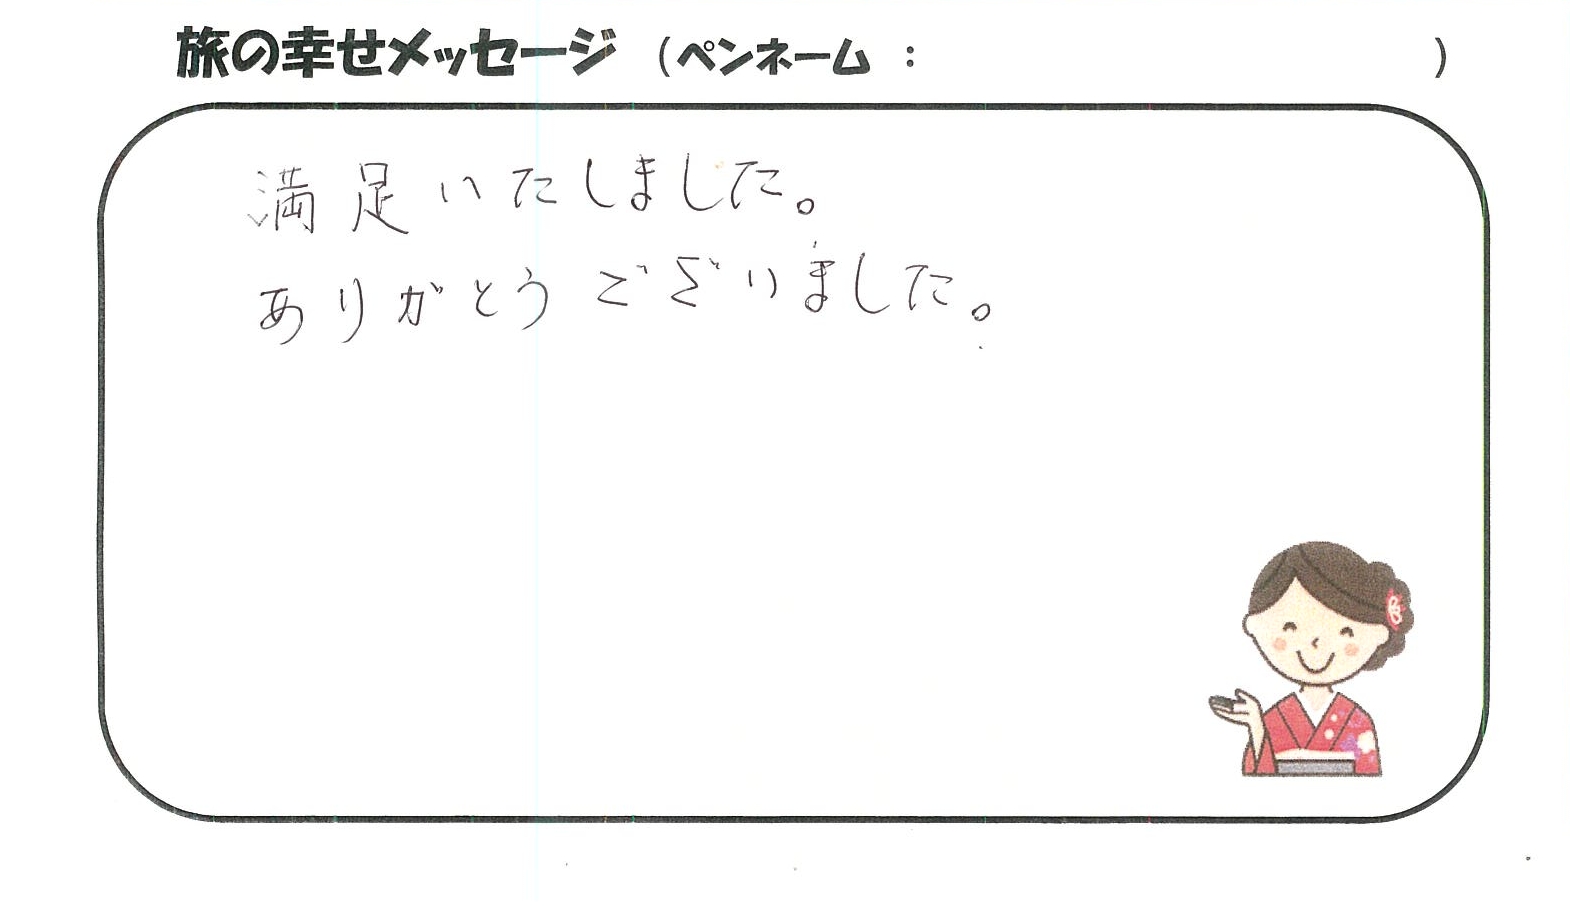 旅の幸せメッセージ (ペンネーム : )
満足いたしました。
ありがとうございました。